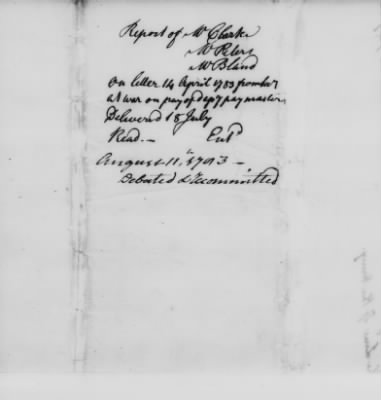 Report of Mr Clarke
Mr Peters
Mr Bland
on letter 14 April 1783 from
at war on pay of depy pay masters
Delivered 18 July
Read.— Entd
August 11th, 1783—
Debated & recommitted